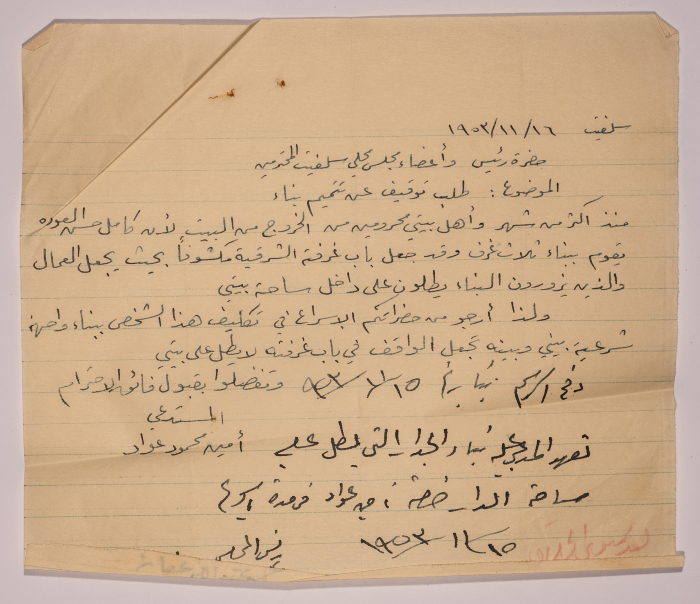 سلفيت ١٩٥٣/١١/١٦
حضرة رئيس وأعضاء مجلس محلي سلفيت المحترمين
الموضوع: طلب توقيف عن تتميم بناء
منذ اكثر من شهر وأهل بيتي محرومين من الخروج من البيت لأن كامل حسن العوده
يقوم ببناء ثلاث غرف وقد جعل باب غرفة الشرقية مكشوفاً بحيث يجعل العمال
والذين يزورون البناء يطلون على داخل ساحة بيتي
ولذا أرجو من حضراتكم الاسراع في تكليف هذا الشخص ببناء واجهة
شرعية بيني وبينه تجعل الواقف في باب غرفته لا يطل على بيتي
وتفضلوا بقبول فائق الاحترام
المستدعي
أمين محمود عواد
تعهد المدعى عليه ببناء الجدار التي يطل على
ساحة الدار أمين عواد
رئيس المجلس ١٩٥٣/١١/١٥